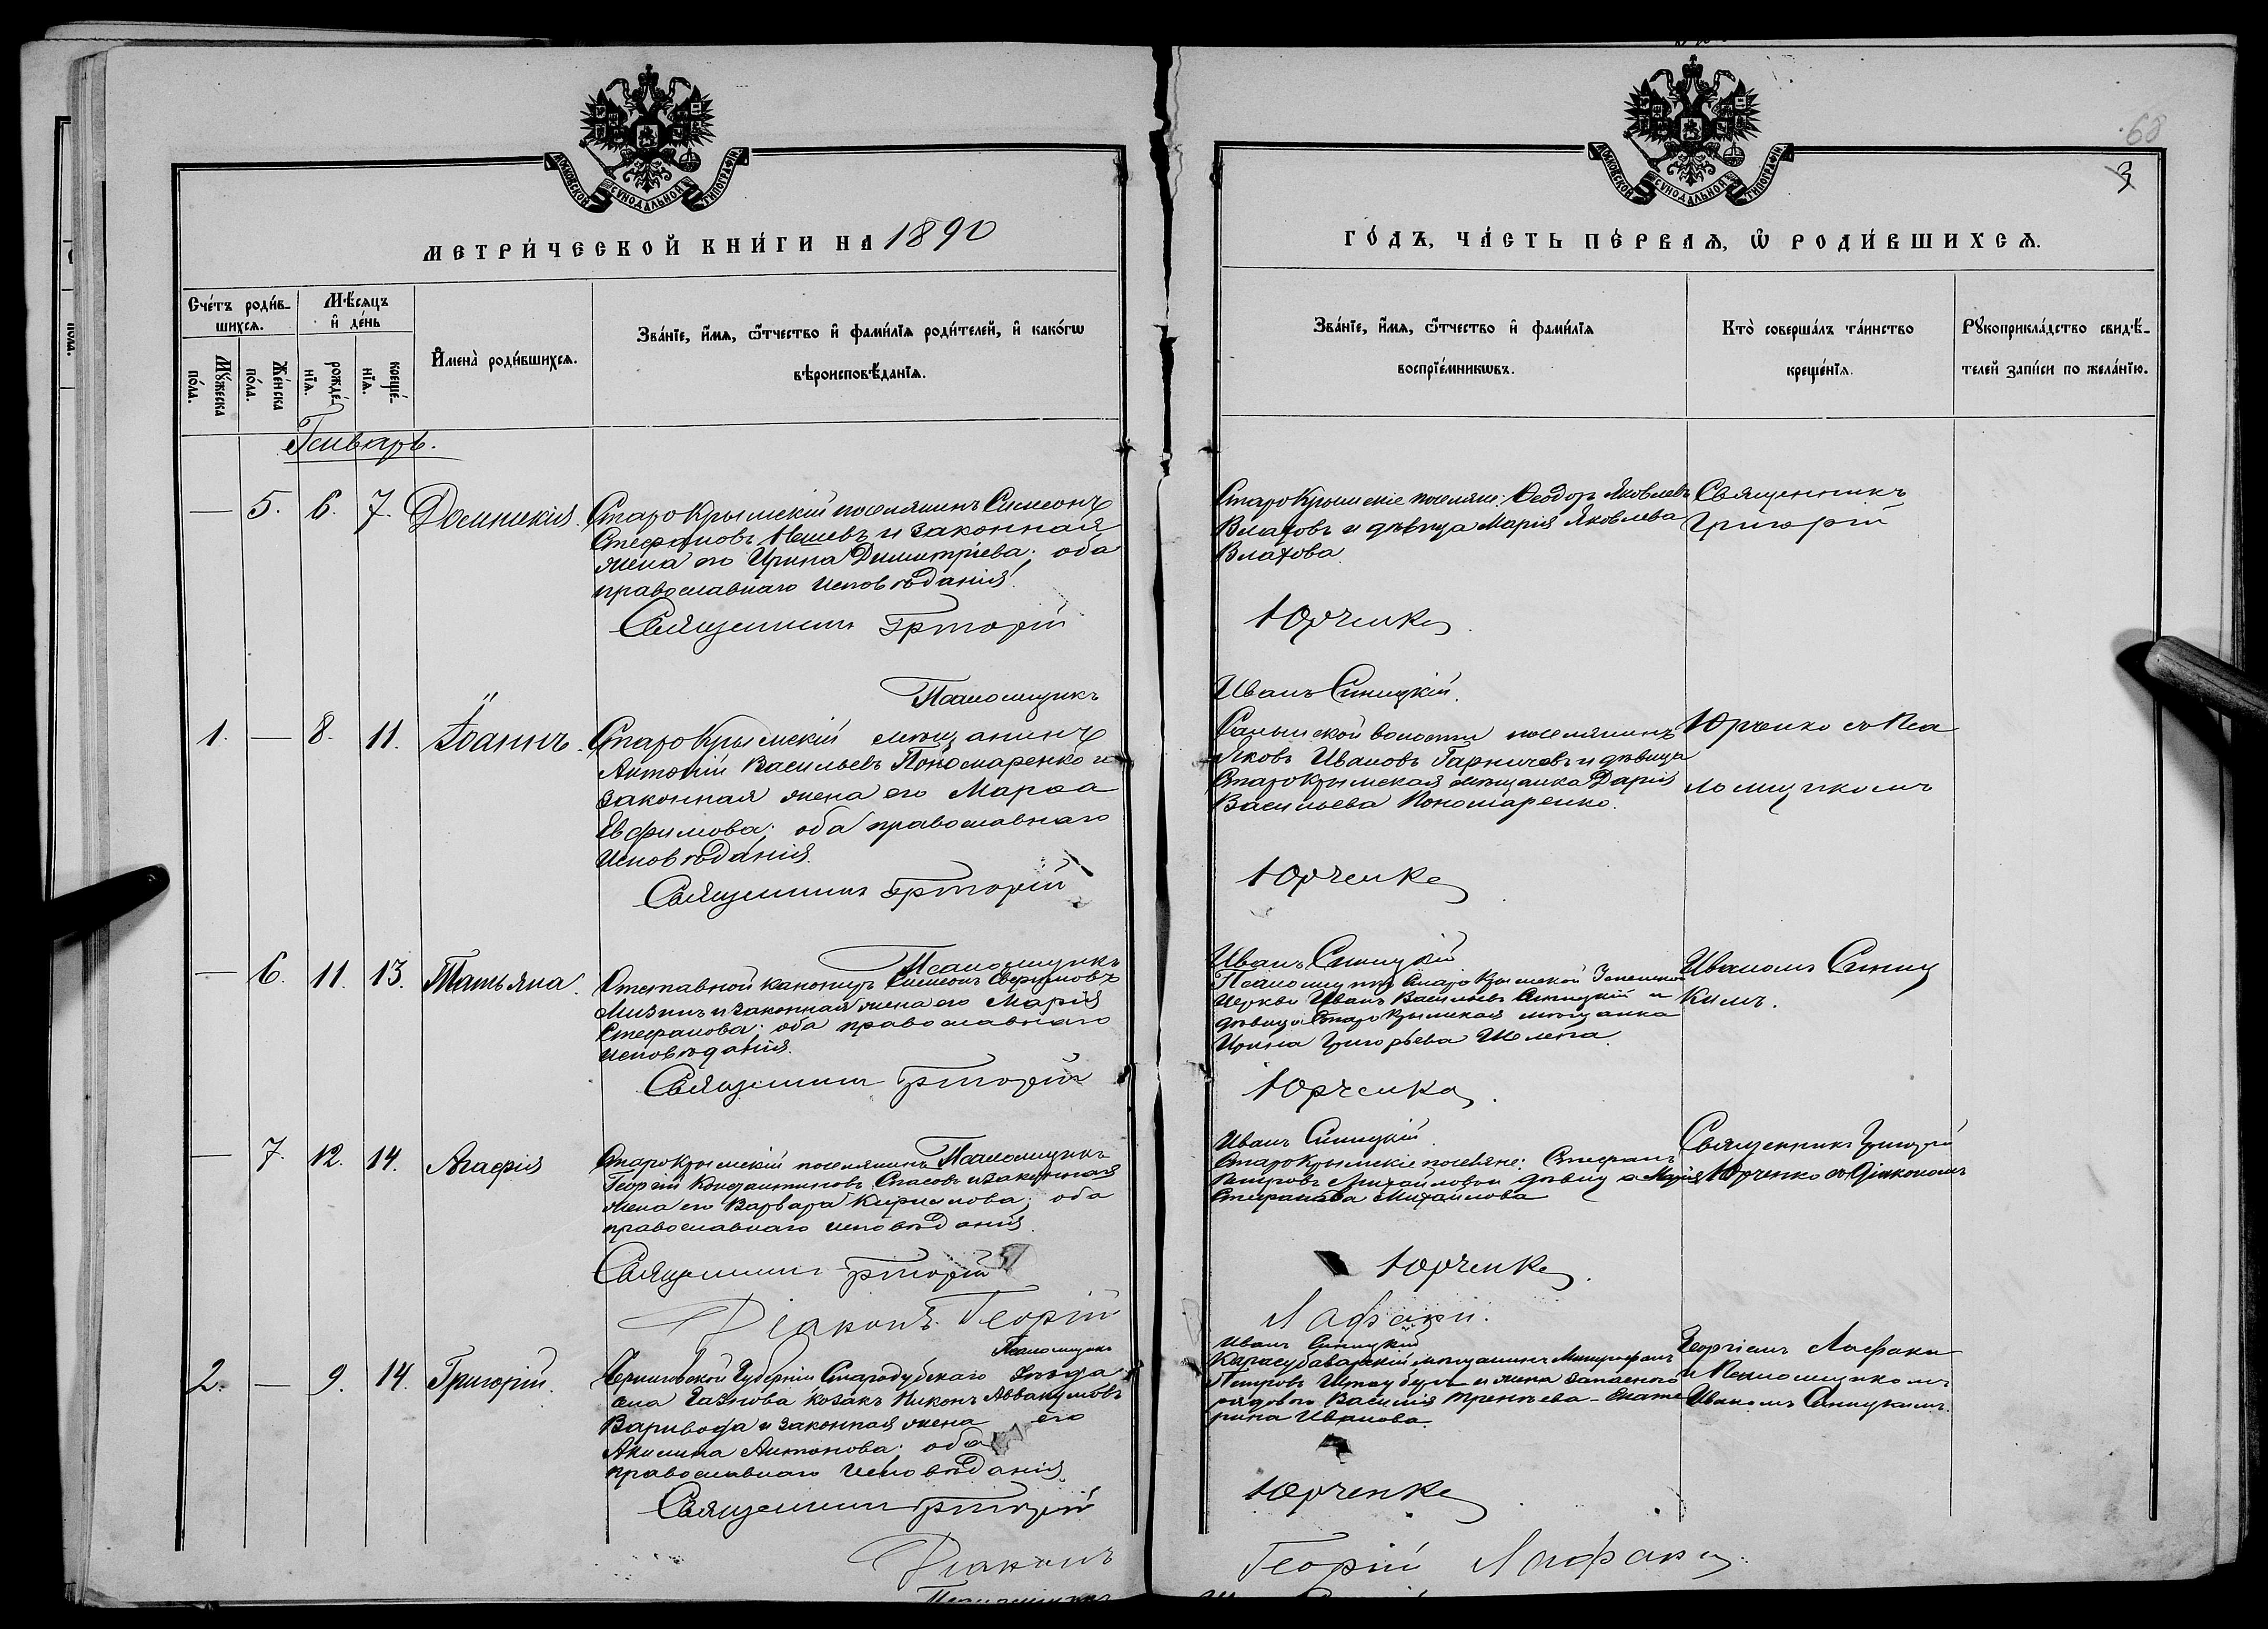 МОСКОВСКОЙ СѴНОДАЛЬНОЙ ТИПОГРАФІИ
МЕТРИ́ЧЕСКОЙ КНИ́ГИ НА 1890
Сче́тъ роди́в-
шихсѧ.
Мѣ́сѧцъ
и҆ де́нь
Мꙋ́жеска
по́ла.
Же́нска
по́ла.
рожде́-
нїѧ.
креще́-
нїѧ.
И҆мена̀ роди́вшихсѧ.
Зва́нїе, и҆́мѧ, ѻ҆́тчество и҆ фами́лїѧ роди́телей, и҆ како́гѡ
вѣроисповѣ́данїѧ.
Январь.
— 5. 6. 7. Домникія.
СтароКрымскій поселянинъ Симеонъ
Стефановъ Нешевъ и законная
жена его Ирина Димитріева; оба
православнаго исповѣданія.
Священникъ Григорій
Псаломщикъ
1. — 8. 11. Іоаннъ.
СтароКрымскій мѣщанинъ
Антоній Васильевъ Пономаренко и
законная жена его Марѳа
Евфимова; оба православнаго
исповѣданія.
Священникъ Григорій
Псаломщикъ
— 6. 11. 13. Татьяна.
Отставной канониръ Симеонъ
Мизинъ и законная жена его Марія
Стефанова; оба православнаго
исповѣданія.
Священникъ Григорій
Псаломщикъ
— 7. 12. 14. Агафія
СтароКрымскій поселянинъ
Георгій Константиновъ Спасовъ и законная
жена его Варвара Кирилова; оба
православнаго исповѣданія.
Священникъ Григорій
Діаконъ Георгій
Псаломщикъ
2. — 9. 14. Григорій.
Черниговской Губерніи Стародубскаго Уѣзда
села козакъ Никонъ Аввакумовъ
Варивода и законная жена его
Акилина Антонова; оба
православнаго исповѣданія.
Священникъ Григорій
Діаконъ
Псаломщикъ
68
3
МОСКОВСКОЙ СѴНОДАЛЬНОЙ ТИПОГРАФІИ
ГО́ДЪ, ЧА́СТЬ ПЕ́РВАѦ, Ѽ РОДИ́ВШИХСѦ.
Зва́нїе, и҆́мѧ, ѻ҆́тчество и҆ фами́лїѧ
воспрїе́мникѡвъ.
Кто̀ соверша́лъ та́инство
креще́нїѧ.
Рꙋкоприкла́дство свидѣ́-
телей за́писи по жела́нїю.
СтароКрымскіе поселяне: Ѳеодоръ Яковлевъ
Влаховъ и дѣвица Марія Яковлева
Влахова.
Юрченко
Иванъ Синицкій.
Священникъ
Григорій
волости поселянинъ
Яковъ Ивановъ Гарничевъ и дѣвица
СтароКрымская мѣщанка Дарія
Васильева Пономаренко.
Юрченко
Иванъ Синицкій
Юрченко съ Пса
ломщикомъ
Псаломщикъ СтароКрымской
Церкви Иванъ Васильевъ Синицкій и
дѣвица СтароКрымская мѣщанка
Ирина Григорьева
Юрченко
Иванъ Синицкій.
Иваномъ Синиц
кимъ.
СтароКрымскіе поселяне: Стефанъ
Петровъ Михайловъ и дѣвица Марія
Стефанова Михайлова
Юрченко.
Лафаки.
Иванъ Синицкій
Священникъ Григорій
Юрченко съ Діакономъ
Карасубазарскій мѣщанинъ Митрофанъ
Петровъ и жена запаснаго
рядового Василія Терентьева - Екате
рина Иванова.
Юрченко
Георгій Лафаки.
Георгіемъ Лафаки
и Псаломщикомъ
Иваномъ Синицкимъ.